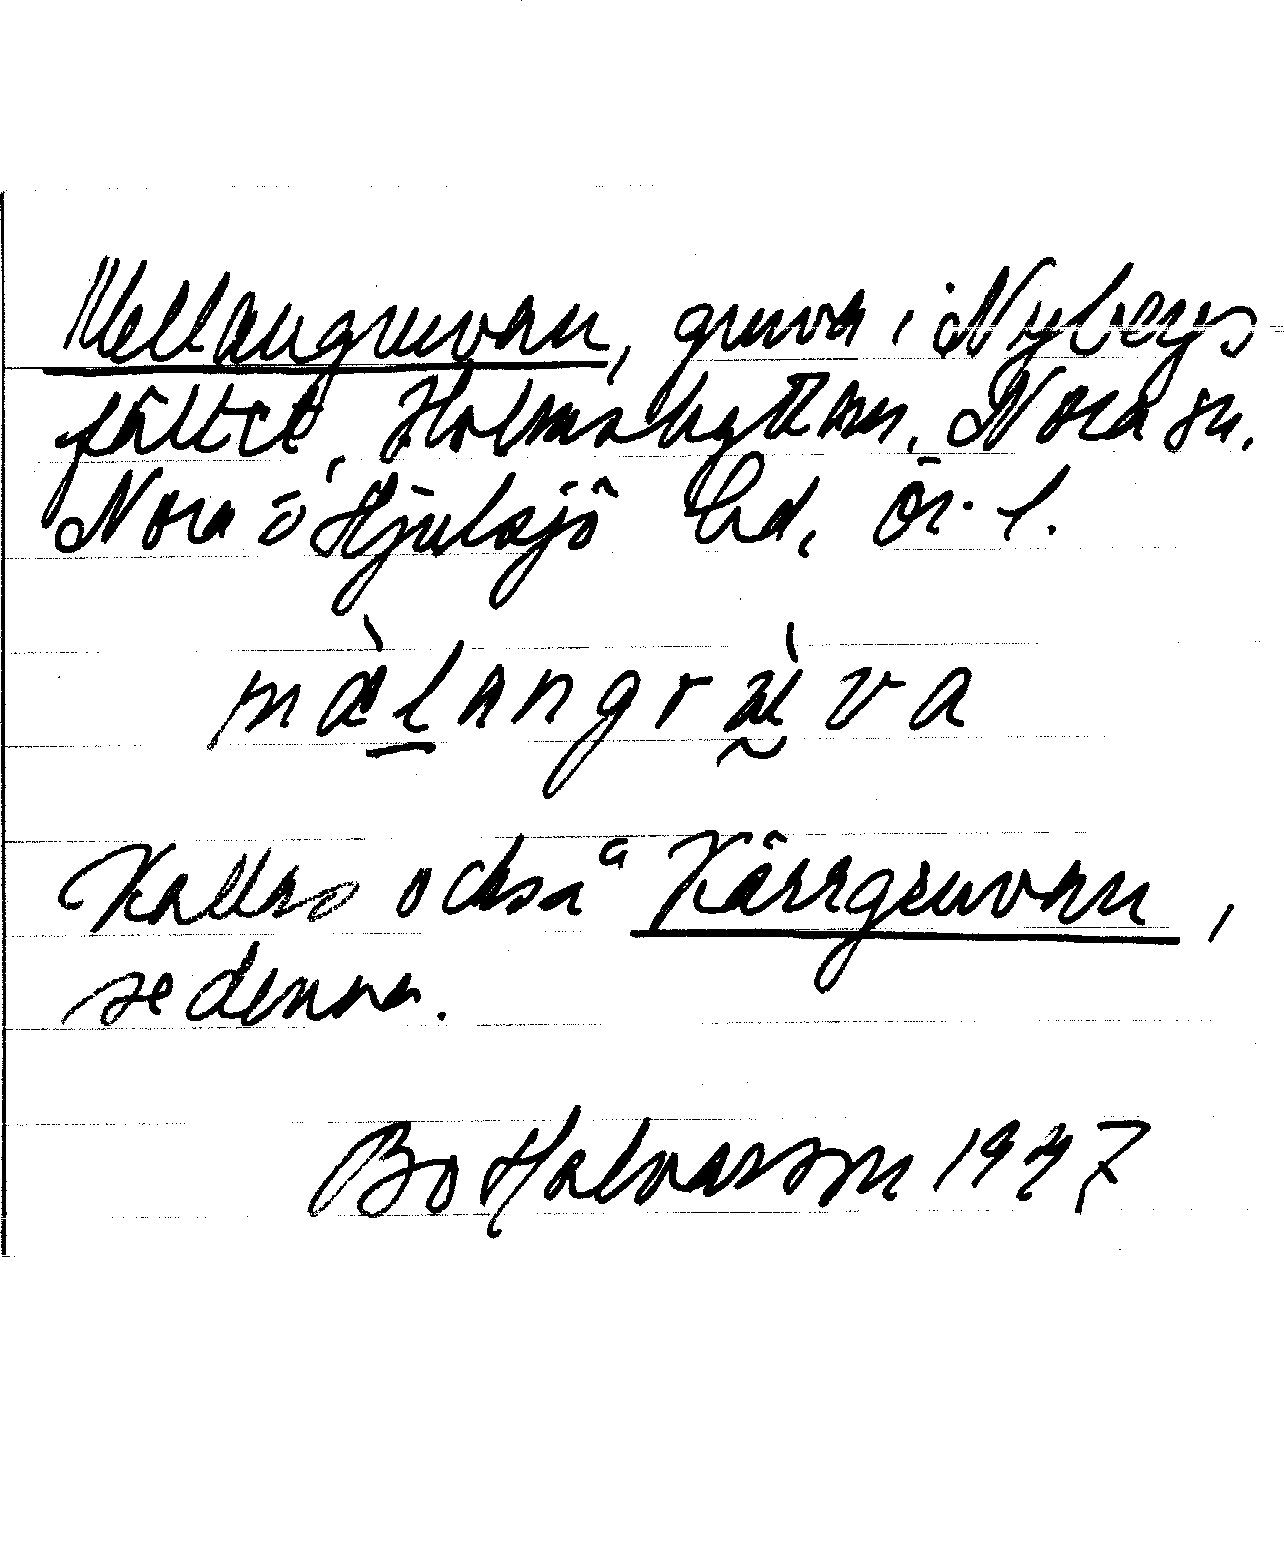 Mellangruvan, gruva i Nybergs
fältet, Holmshyttan, Nora sn,
Nora o Hjulsjö bd, Ör. l.
mälangruva
Kallas också Kärrgruvan,
se denna.
Bo Halvarsson 1947